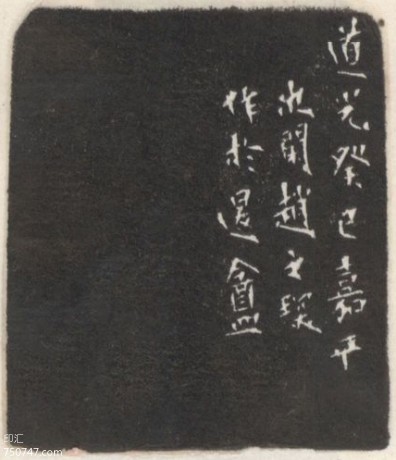 道光癸巳嘉平
次閑趙之琛
作於退盦
印汇
750747.com